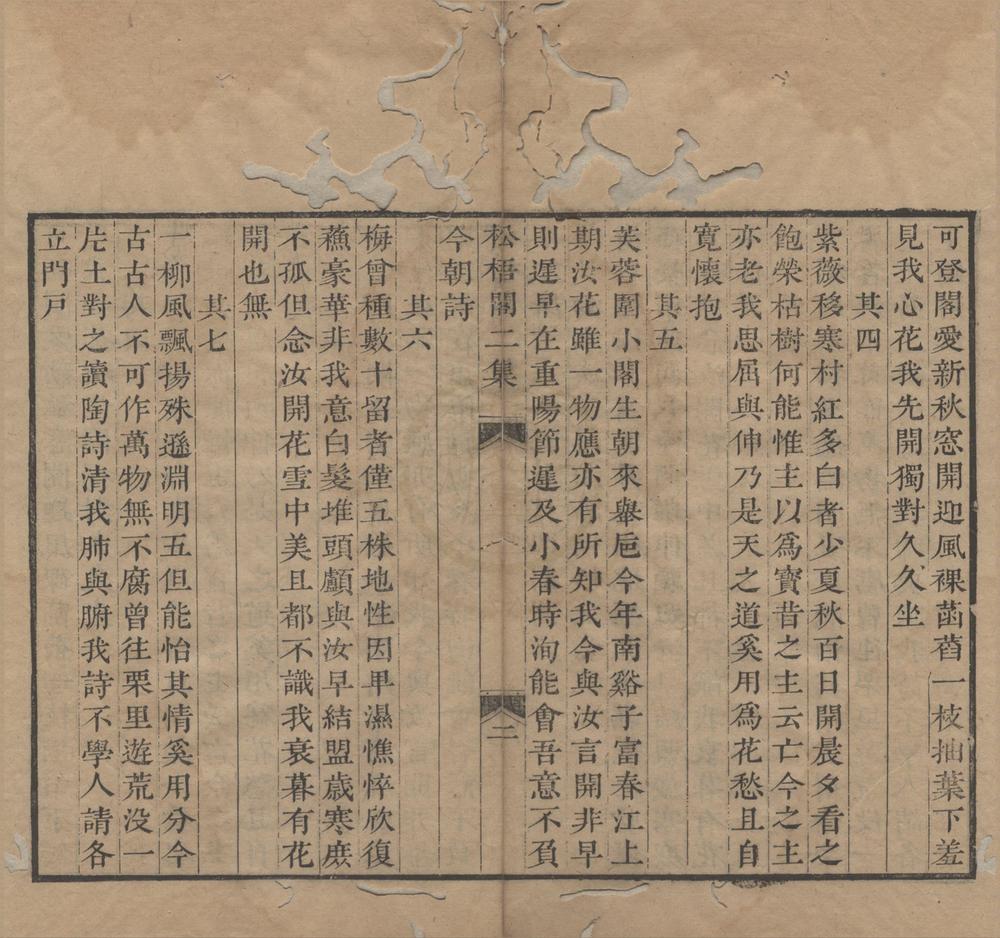 可登閣愛新秋窓開迎風裸菡萏一枝抽葉下羞
見我心花我先開獨對久久坐
其四
紫薇移寒村紅多白者少夏秋百日開晨夕看之
飽榮枯樹何能惟主以爲寳昔之主云亡今之主
亦老我思屈與伸乃是天之道奚用爲花愁且自
寛懷抱
其五
芙蓉圍小閣生朝來舉巵今年南谿子富春江上
期汝花雖一物應亦有所知我今與汝言開非早
則遲早在重陽節遲及小春時洵能會吾意不負
松梧閣二集
二
今朝詩
其六
梅曾種數十留者僅五株地性因畢濕憔悴欣復
蘓豪華非我意白髮堆頭顱與汝早結盟歲寒庶
不孤但念汝開花雪中美且都不識我衰暮有花
開也無
其七
一柳風飄揚殊遜淵明五但能怡其情奚用分今
古古人不可作萬物無不腐曾往栗里遊荒没一
片土對之讀陶詩清我肺與腑我詩不學人請各
立門戸